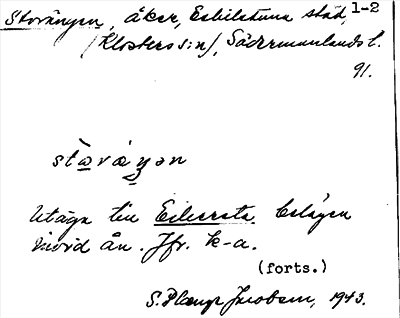 Storängen, åker, Eskilstuna stad, 1-2
(Klosters s:n), Södermanlands l.
91.
Utäga till belägen
invid ån. Jfr. k-a.
(forts.)
Jacobson, 1943.